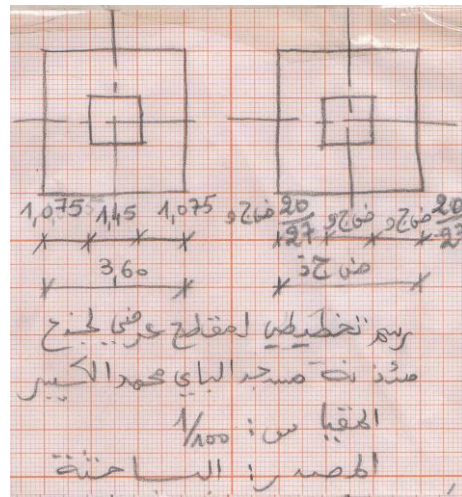 1,075 1,45 1,075
20/27 ض ج و ض ج و 20/27 ض ج و
3,60
ض ج ق
رسم تخطيطي لمقطع عرضي لجذع
مئذنة مسجد الباي محمد الكبير
المقياس: 1/100
المصدر: الباحثة